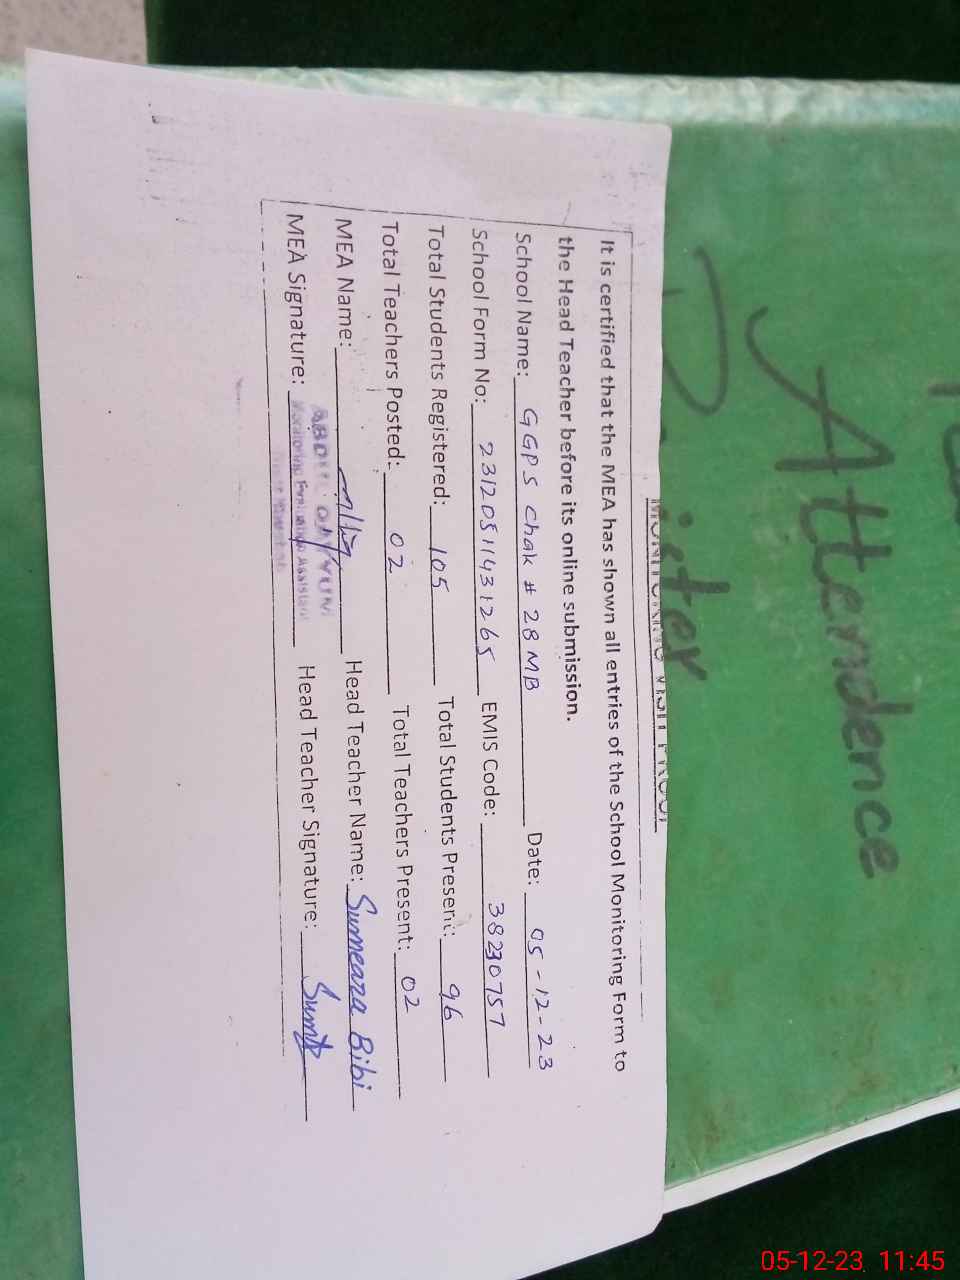 Attendence
Register
MONITORING VISIT PROOF
It is certified that the MEA has shown all entries of the School Monitoring Form to
the Head Teacher before its online submission.
School Name: GGPS Chak # 28 MB Date: 05-12-23
School Form No: 23120511431265 EMIS Code: 38230757
Total Students Registered: 105 Total Students Present: 96
Total Teachers Posted: 02 Total Teachers Present: 02
MEA Name: Head Teacher Name: Sumeara Bibi
MEA Signature: Head Teacher Signature:
Monitoring Evaluation Assistant
05-12-23, 11:45